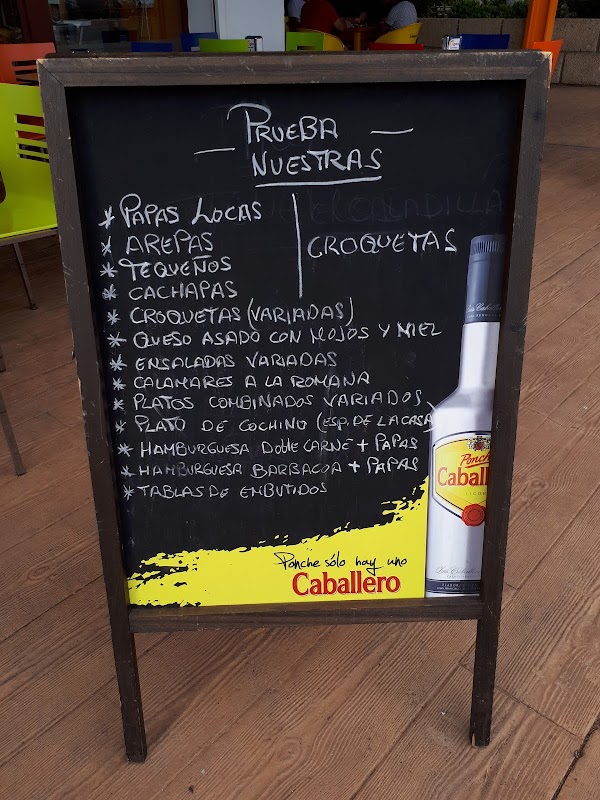 PRUEBA
NUESTRAS
* PAPAS LOCAS
* AREPAS
* TEQUEÑOS
* CACHAPAS
CROQUETAS
* CROQUETAS (VARIADAS)
* QUESO ASADO CON MOJOS Y MIEL
* ENSALADAS VARIADAS
* CALAMARES A LA ROMANA
* PLATOS COMBINADOS VARIADOS
* PLATO DE COCHINO (ESP. DE LA CASA)
* HAMBURGUESA DOBLE CARNE + PAPAS
* HAMBURGUESA BARBACOA + PAPAS
* TABLAS DE EMBUTIDOS
Ponche sólo hay uno
Caballero